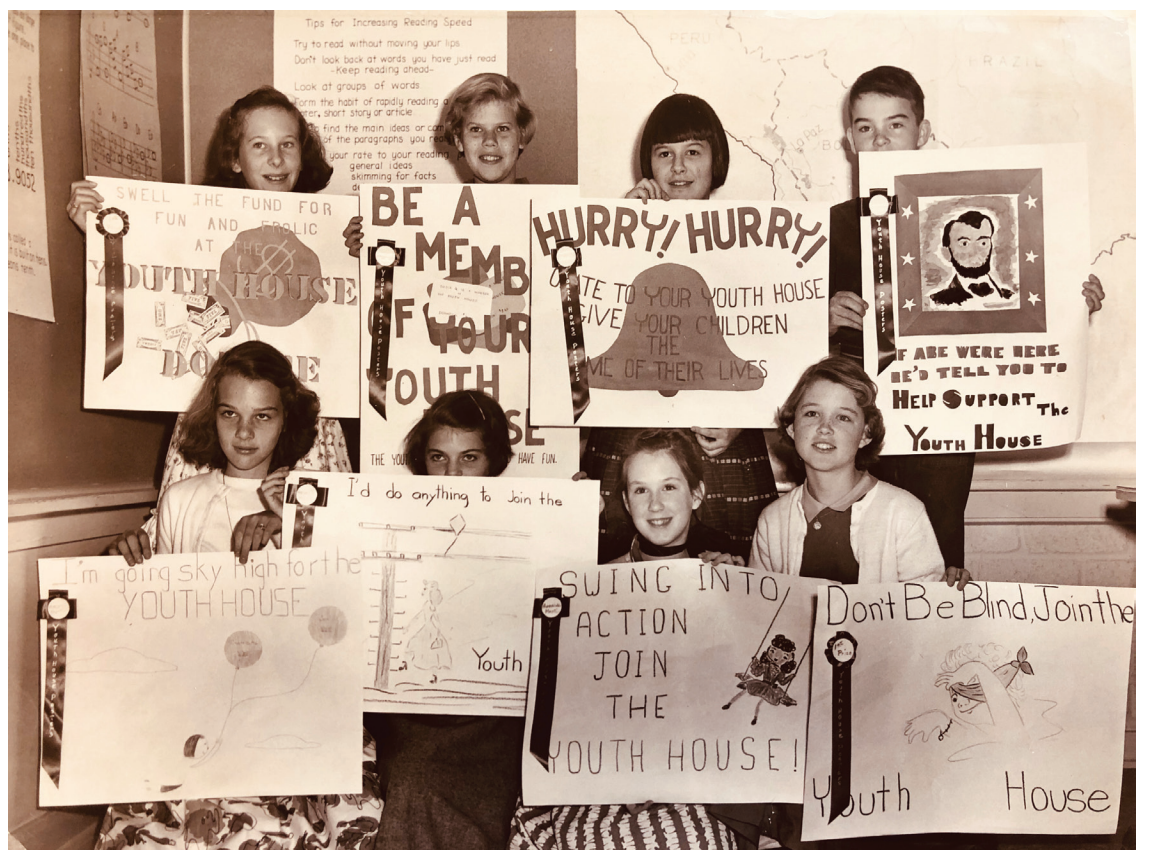 Tips for Increasing Reading Speed
Try to read without moving your lips
Don't look back at words you have just read
-Keep reading ahead-
Look at groups of words
Form the habit of rapidly reading a
short story or article
find the main ideas or
of the paragraphs you
your rate to your reading
general ideas
skimming for facts
PERU
BRAZIL
SWELL THE FUND FOR
FUN AND FROLIC
AT THE
YOUTH HOUSE
BE A
MEMB
OF YOUR
YOUTH
SE
THE YOU
HAVE FUN.
Youth House Posters
HURRY! HURRY!
TO YOUR YOUTH HOUSE
GIVE YOUR CHILDREN
THE
ME OF THEIR LIVES
Youth House Posters
Youth House Posters
F ABE WERE HERE
HE'D TELL YOU TO
HELP SUPPORT The
YOUTH HOUSE
I'm going sky high for the
YOUTH HOUSE
I'd do anything to Join the
Youth
SWING INTO
ACTION
JOIN
THE
YOUTH HOUSE!
Don't Be Blind, Join the
Youth House